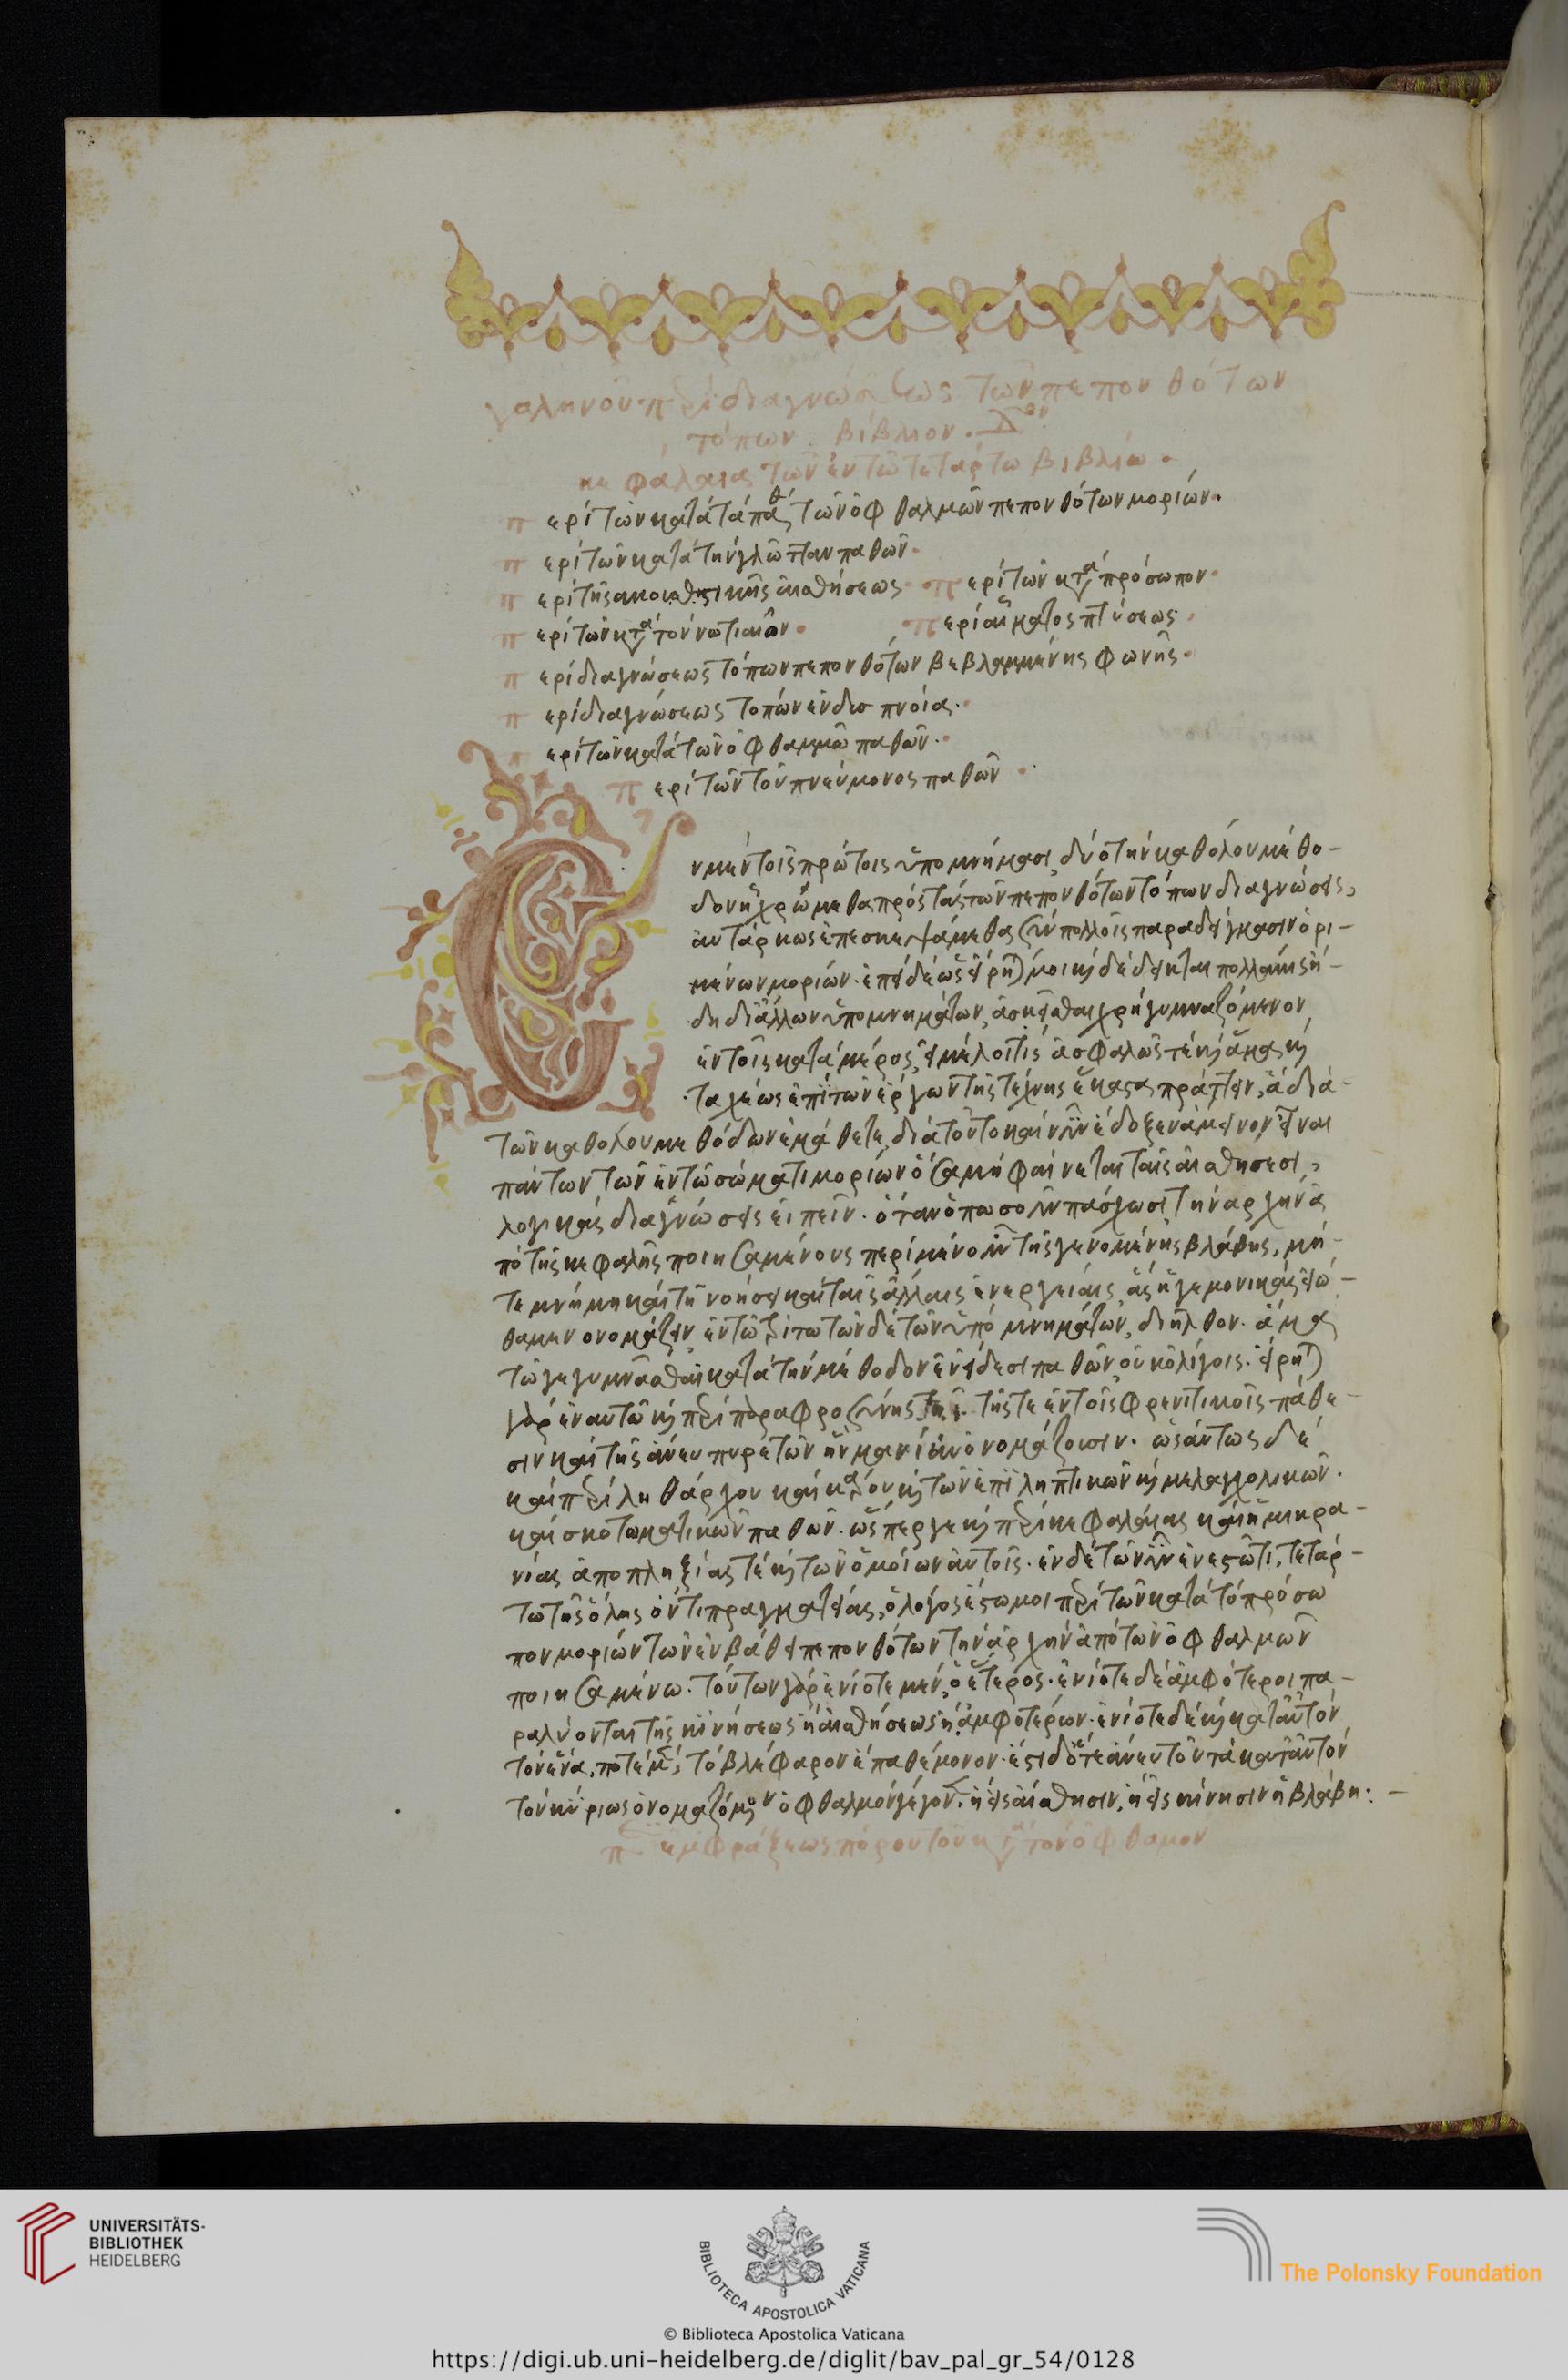 γαληνοῦ περὶ διαγνώσεως τῶν πεπονθότων
τόπων. βίβλιον. Δον
κεφάλαια τῶν ἐν τῶ τετάρτω βιβλίω.
περὶ τῶν κατὰ τὰ πάθ τῶν ὀφθαλμῶν πεπονθότων μορίων.
περὶ τῶν κατὰ τὴν γλῶτταν παθῶν.
περὶ τῆς ἀκουστικῆς αἰσθήσεως. περὶ τῶν κτὰ πρόσωπον.
περὶ τῶν κτὰ τὸν νωτιαῖον. περὶ αἵματος πτύσεως.
περὶ διαγνώσεως τόπων πεπονθότων βεβλαμμένης φωνῆς.
περὶ διαγνώσεως τοπών ἐν δυσπνοία.
περὶ τῶν κατὰ τῶν ὀφθαλμῶ παθῶν.
περὶ τῶν τοῦ πνεύμονος παθῶν.
Ἐν μὲν τοῖς πρώτοις ὑπομνήμασι δύο τὴν καθόλου μέθο-
δον ἧ χρώμεθα πρὸς τὰς τῶν πεπονθότων τόπων διαγνώσεις,
αὐτάρκως ἐπεσκεψάμεθα σὺν πολλοῖς παραδείγμασιν ὁρι-
μένων μορίων. ἐπεὶ δὲ ὡς εἴρηταί μοι καὶ δέδεικται πολλάκις ἤ-
δη δι' ἄλλων ὑπομνημάτων, ἀσκεῖσθαι χρὴ γυμναζόμενον
ἐν τοῖς κατὰ μέρος, εἰ μέλοι τίς ἀσφαλῶς τὲ καὶ ἅμα καὶ
ταχέως ἐπὶ τῶν ἔργων τῆς τέχνης ἕκαστα πράττειν, ἃ διὰ
τῶν καθόλου μεθόδων ἐμάθετε, διὰ τοῦτο καὶ νῦν ἔδοξεν ἄμεινον εἶναι
πάντων τῶν ἐν τῶ σώματι μορίων ὅσα μὴ φαίνεται ταῖς αἰσθήσεσι,
λογικὰς διαγνώσεις εἰπεῖν. ὅταν ὁπωσοῦν πάσχωσι τὴν ἀρχὴν ἀ
πὸ τῆς κεφαλῆς ποιησαμένους περὶ μὲν οὖν τῆς γενομένης βλάβης, μή-
τε μνήμη καὶ τῆ νοήσει καὶ ταῖς ἄλλαις ἐνεργείαις, ἃς ἡγεμονικὰς εἰώ-
θαμεν ὀνομάζειν, ἐν τῶ τρίτω τῶνδε τῶν ὑπομνημάτων, διῆλθον. ἅμα
τῶ γεγυμνᾶσθαι κατὰ τὴν μέθοδον ἐν εἴδεσι παθῶν οὐκ ὀλίγοις. εἴρηται
γὰρ ἐν αὐτῶ καὶ περὶ παραφροσύνης τῆς τε ἐν τοῖς φρενιτικοῖς πάθε-
σιν καὶ τῆς ἄνευ πυρετῶν ἣν μανίαν ὀνομάζουσιν. ὡσαύτως δὲ
καὶ περὶ ληθάργου καὶ κάρου καὶ τῶν ἐπιληπτικῶν καὶ μελαγχολικῶν.
καὶ σκοτωματικῶν παθῶν. ὥσπερ γε καὶ περὶ κεφαλαίας καὶ ἡμικρα-
νίας ἀποπληξίας τὲ καὶ τῶν ὁμοίων αὐτοῖς. ἐν δὲ τῶ νῦν ἐνεστῶτι, τετάρ-
τω τῆς ὅλης ὄντι πραγματείας, ὁ λόγος ἔστω μοι περὶ τῶν κατὰ τὸ πρόσω
πον μορίων τῶν ἐν βάθει πεπονθότων τὴν ἀρχὴν ἀπὸ τῶν ὀφθαλμῶν
ποιησαμένω. τούτων γὰρ ἐνίοτε μὲν, ὁ ἕτερος. ἐνίοτε δὲ ἀμφότεροι πα-
ραλύονται τῆς κινήσεως ἢ αἰσθήσεως ἢ ἀμφοτέρων. ἐνίοτε δὲ καὶ κατ' αὐτὸν
τὸν ἕνα, ποτὲ μὲν, τὸ βλέφαρον ἔπαθε μόνον. ἔστι δ' ὅτε ἄνευ τούτου κατ' αὐτὸν
τὸν κύριως ὀνομαζόμενον ὀφθαλμὸν γέγονεν. ἢ εἰς αἴσθησιν, ἢ εἰς κίνησιν ἡ βλάβη: -
περὶ ἐμφράξεως πόρου τοῦ κτὰ τὸν ὀφθαμον
UNIVERSITÄTS-
BIBLIOTHEK
HEIDELBERG
BIBLIOTECA APOSTOLICA VATICANA
The Polonsky Foundation
© Biblioteca Apostolica Vaticana
https://digi.ub.uni-heidelberg.de/diglit/bav_pal_gr_54/0128